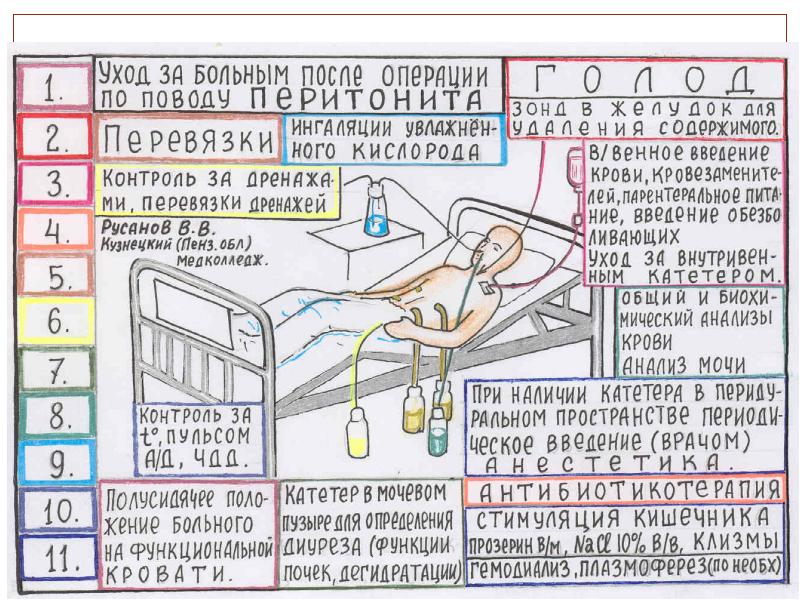 1.
2.
3.
4.
5.
6.
7.
8.
9.
10.
11.
УХОД ЗА БОЛЬНЫМ ПОСЛЕ ОПЕРАЦИИ
ПО ПОВОДУ ПЕРИТОНИТА
ГОЛОД
ЗОНД В ЖЕЛУДОК ДЛЯ
УДАЛЕНИЯ СОДЕРЖИМОГО.
ПЕРЕВЯЗКИ
ИНГАЛЯЦИИ УВЛАЖНЁН-
НОГО КИСЛОРОДА
В/ВЕННОЕ ВВЕДЕНИЕ
КРОВИ, КРОВЕЗАМЕНИТЕ-
ЛЕЙ, ПАРЕНТЕРАЛЬНОЕ ПИТА-
НИЕ, ВВЕДЕНИЕ ОБЕЗБО
ЛИВАЮЩИХ
УХОД ЗА ВНУТРИВЕН-
НЫМ КАТЕТЕРОМ.
КОНТРОЛЬ ЗА ДРЕНАЖА-
МИ, ПЕРЕВЯЗКИ ДРЕНАЖЕЙ
Русанов В.В.
Кузнецкий (Пенз.обл)
медколледж.
ОБЩИЙ И БИОХИ-
МИЧЕСКИЙ АНАЛИЗЫ
КРОВИ
АНАЛИЗ МОЧИ
КОНТРОЛЬ ЗА
t°, ПУЛЬСОМ
А/Д, ЧДД.
ПРИ НАЛИЧИИ КАТЕТЕРА В ПЕРИДУ-
РАЛЬНОМ ПРОСТРАНСТВЕ ПЕРИОДИ-
ЧЕСКОЕ ВВЕДЕНИЕ (ВРАЧОМ)
АНЕСТЕТИКА.
ПОЛУСИДЯЧЕЕ ПОЛО-
ЖЕНИЕ БОЛЬНОГО
НА ФУНКЦИОНАЛЬНОЙ
КРОВАТИ.
КАТЕТЕР В МОЧЕВОМ
ПУЗЫРЕ ДЛЯ ОПРЕДЕЛЕНИЯ
ДИУРЕЗА (ФУНКЦИИ
ПОЧЕК, ДЕГИДРАТАЦИИ)
АНТИБИОТИКОТЕРАПИЯ
СТИМУЛЯЦИЯ КИШЕЧНИКА
ПРОЗЕРИН В/М, NaCl 10% В/В, КЛИЗМЫ
ГЕМОДИАЛИЗ, ПЛАЗМОФЕРЕЗ (ПО НЕОБХ)